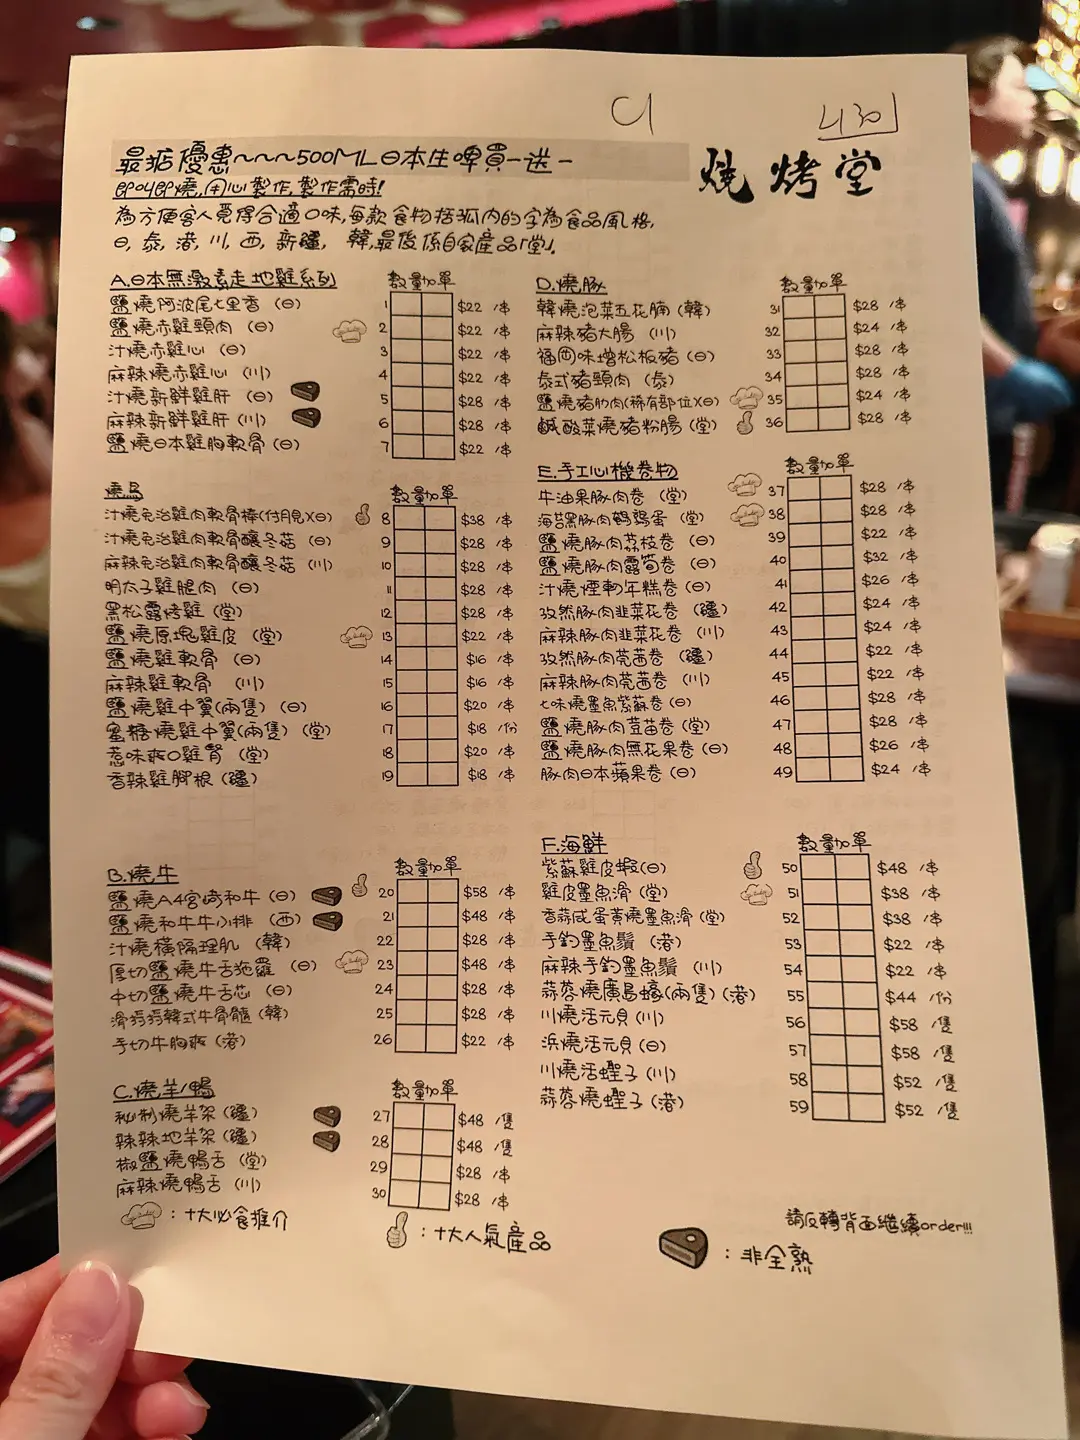 C1
430
最抵優惠~~~500ML日本生啤買一送一
燒烤堂
即叫即燒,用心製作,製作需時!
為方便客人覓得合適口味,每款食物括弧內的字為食品風格,
日,泰,港,川,西,新疆,韓,最後係自家產品「堂」.
A.日本無激素走地雞系列 數量加單
鹽燒阿波尾七里香 (日) 1 $22 /串
鹽燒赤雞頸肉 (日) 2 $22 /串
汁燒赤雞心 (日) 3 $22 /串
麻辣燒赤雞心 (川) 4 $22 /串
汁燒新鮮雞肝 (日) 5 $28 /串
麻辣新鮮雞肝 (川) 6 $28 /串
鹽燒日本雞胸軟骨 (日) 7 $22 /串
燒鳥 數量加單
汁燒免治雞肉軟骨棒(付月見)(日) 8 $38 /串
汁燒免治雞肉軟骨釀冬菇 (日) 9 $28 /串
麻辣免治雞肉軟骨釀冬菇 (川) 10 $28 /串
明太子雞腿肉 (日) 11 $28 /串
黑松露烤雞 (堂) 12 $28 /串
鹽燒原塊雞皮 (堂) 13 $22 /串
鹽燒雞軟骨 (日) 14 $16 /串
麻辣雞軟骨 (川) 15 $16 /串
鹽燒雞中翼(兩隻) (日) 16 $20 /串
蜜糖燒雞中翼(兩隻) (堂) 17 $18 /份
惹味爽口雞腎 (堂) 18 $20 /串
香辣雞腳根 (疆) 19 $18 /串
B.燒牛 數量加單
鹽燒A4宮崎和牛 (日) 20 $58 /串
鹽燒和牛牛小排 (西) 21 $48 /串
汁燒橫隔理肌 (韓) 22 $28 /串
厚切鹽燒牛舌拖羅 (日) 23 $48 /串
中切鹽燒牛舌芯 (日) 24 $28 /串
滑捋捋韓式牛骨髓 (韓) 25 $28 /串
手切牛胸爽 (港) 26 $22 /串
C.燒羊/鴨 數量加單
秘制燒羊架 (疆) 27 $48 /隻
辣辣地羊架 (疆) 28 $48 /隻
椒鹽燒鴨舌 (堂) 29 $28 /串
麻辣燒鴨舌 (川) 30 $28 /串
D.燒豚 數量加單
韓燒泡菜五花腩 (韓) 31 $28 /串
麻辣豬大腸 (川) 32 $24 /串
福岡味增松板豬 (日) 33 $28 /串
泰式豬頸肉 (泰) 34 $28 /串
鹽燒豬肋肉(稀有部位)(日) 35 $24 /串
鹹酸菜燒豬粉腸 (堂) 36 $28 /串
E.手工心機卷物 數量加單
牛油果豚肉卷 (堂) 37 $28 /串
海苔黑豚肉鵪鶉蛋 (堂) 38 $28 /串
鹽燒豚肉荔枝卷 (日) 39 $22 /串
鹽燒豚肉露筍卷 (日) 40 $32 /串
汁燒煙軔年糕卷 (日) 41 $26 /串
孜然豚肉韭菜花卷 (疆) 42 $24 /串
麻辣豚肉韭菜花卷 (川) 43 $24 /串
孜然豚肉芫茜卷 (疆) 44 $22 /串
麻辣豚肉芫茜卷 (川) 45 $22 /串
七味燒墨魚紫蘇卷 (日) 46 $28 /串
鹽燒豚肉荳苗卷 (堂) 47 $28 /串
鹽燒豚肉無花果卷 (日) 48 $26 /串
豚肉日本蘋果卷 (日) 49 $24 /串
F.海鮮 數量加單
紫蘇雞皮蝦(日) 50 $48 /串
雞皮墨魚滑 (堂) 51 $38 /串
香蒜咸蛋黃燒墨魚滑 (堂) 52 $38 /串
手釣墨魚鬚 (港) 53 $22 /串
麻辣手釣墨魚鬚 (川) 54 $22 /串
蒜蓉燒廣島蠔(兩隻) (港) 55 $44 /份
川燒活元貝 (川) 56 $58 /隻
浜燒活元貝 (日) 57 $58 /隻
川燒活蟶子 (川) 58 $52 /隻
蒜蓉燒蟶子 (港) 59 $52 /隻
:十大必食推介
:十大人氣產品
:非全熟
請反轉背面繼續order!!!